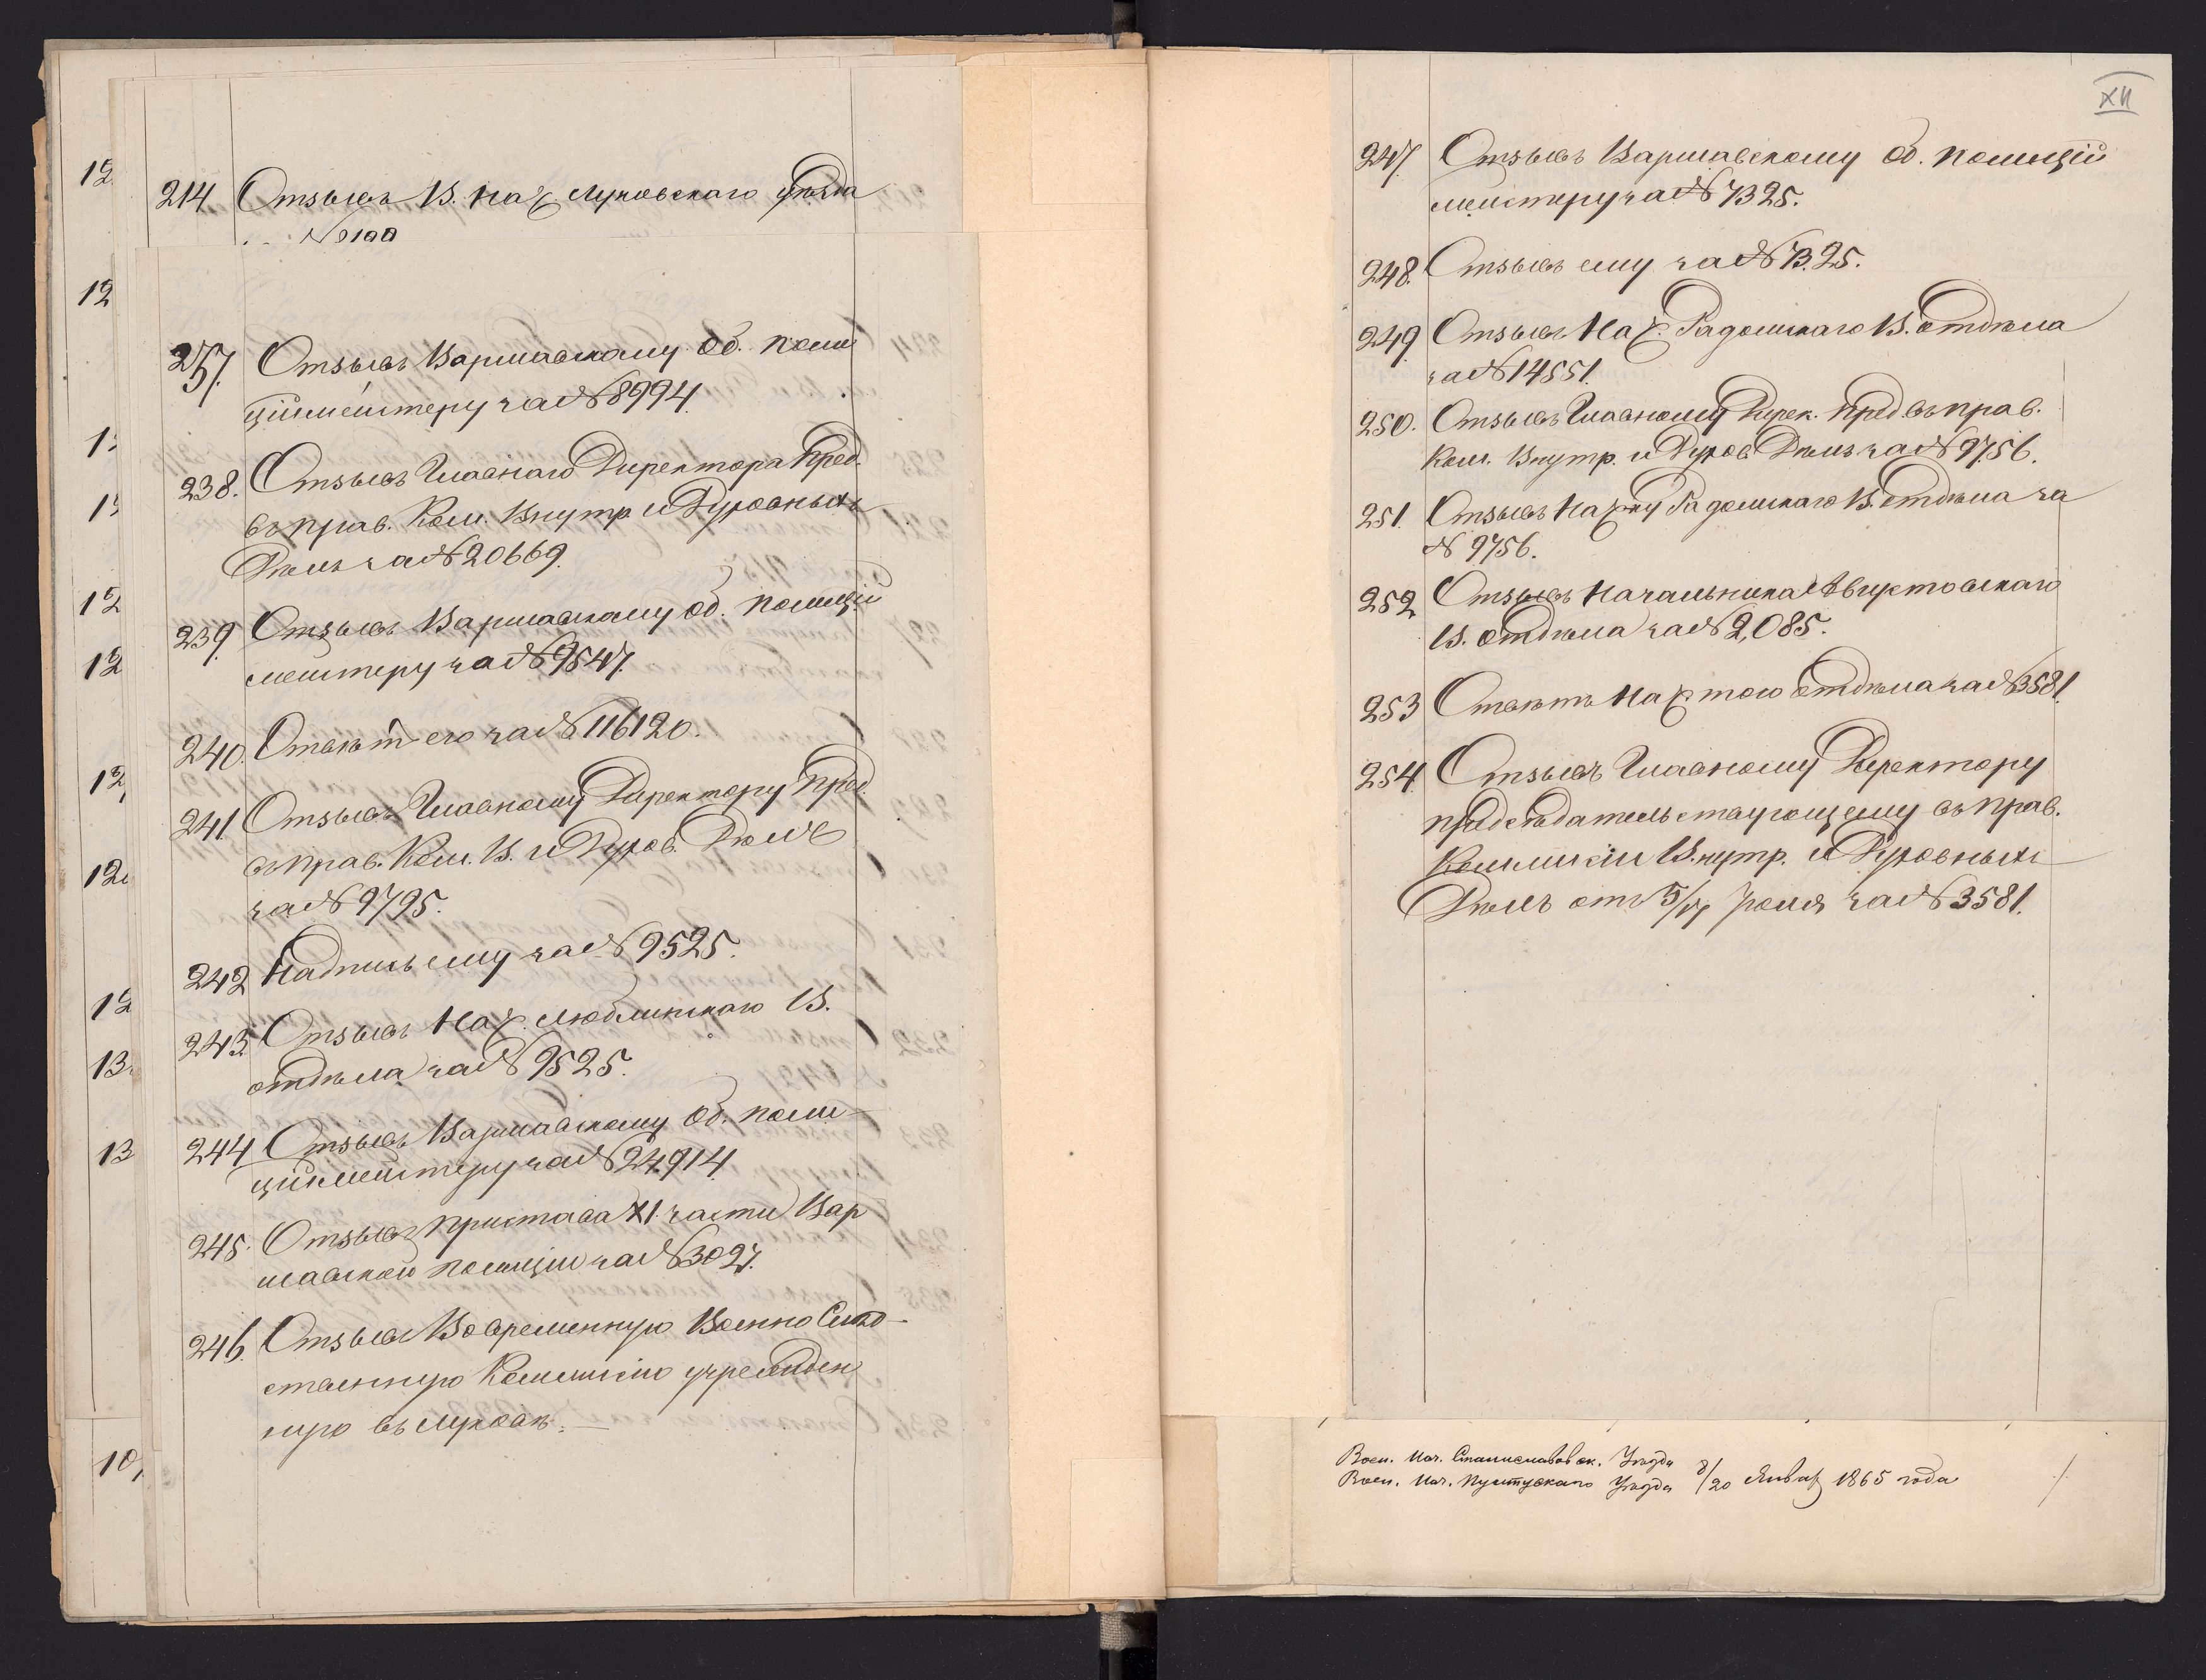 214 Отзывъ В. Нач. Луковскаго уѣзда
237. Отзывъ Варшавскому Об. Поли
ціймейстеру за № 8994.
238. Отзывъ Главнаго Директора Пред.
въ Прав. Ком. Внутр. и Духовныхъ
Дѣлъ за № 20669.
239. Отзывъ Варшавскому Об. Полицій
мейстеру за № 9547.
240. Отвѣтъ его за № 116120.
241 Отзывъ Главному Директору Пред.
въ Прав. Ком. В. и Духов. Дѣлъ
за № 9795.
242 Надпись ему за № 9525.
243. Отзывъ Нач. Люблинскаго В.
отдѣла за № 9525.
244 Отзывъ Варшавскому Об. Поли-
ціймейстеру за № 24914.
245. Отзывъ Пристава XI части Вар
шавской Полиціи за № 3027.
246. Отзывъ Во временную Военно Слѣд-
ственную Коммисію учрежден
ную въ Луковѣ.
XII
247. Отзывъ Варшавскому Об. Полицій
мейстеру за № 7325.
248. Отзывъ ему за № 7325.
249. Отзывъ Нач. Радомскаго В. отдѣла
за № 14551.
250. Отзывъ Главному Дирек. Пред въ Прав.
Ком. Внутр. и Духов. Дѣлъ за № 9756.
251. Отзывъ Нач-ку Радомскаго В. Отдѣла за
№ 9756.
252 Отзывъ Начальника Августовскаго
В. Отдѣла за № 2,085.
253 Отвѣтъ Нач. того Отдѣла за № 3581.
254. Отзывъ Главному Директору
предсѣдательствующему въ Прав.
Коммисіи Внутр. и Духовныхъ
Дѣлъ отъ 5/17 Іюля за № 3581.
Воен. Нач. Станиславовск. Уѣзда
Воен. Нач. Пултускаго Уѣзда 8/20 Январ 1865 года
12
12
13
13
10